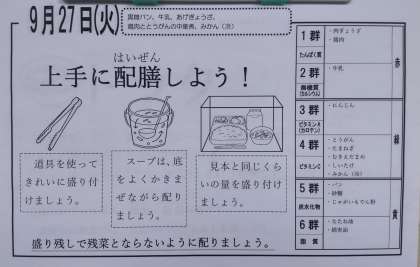 9月27日(火)
黒糖パン、牛乳、あげぎょうざ、
鶏肉ととうがんの中華煮、みかん（冷）
はいぜん
上手に配膳しよう！
道具を使って
きれいに盛り付
けましょう。
スープは、底
をよくかきま
ぜながら配り
ましょう。
見本と同じくら
いの量を盛り付け
ましょう。
盛り残しで残菜とならないように配りましょう。
1群
たんぱく質
・肉ぎょうざ
・鶏肉
2群
無機質
(カルシウム)
・牛乳
赤
3群
ビタミンA
(カロテン)
・にんじん
4群
ビタミンC
・とうがん
・たまねぎ
・むきえだまめ
・しいたけ
・みかん（冷）
緑
5群
炭水化物
・パン
・砂糖
・じゃがいもでん粉
6群
脂質
・なたね油
・綿実油
黄